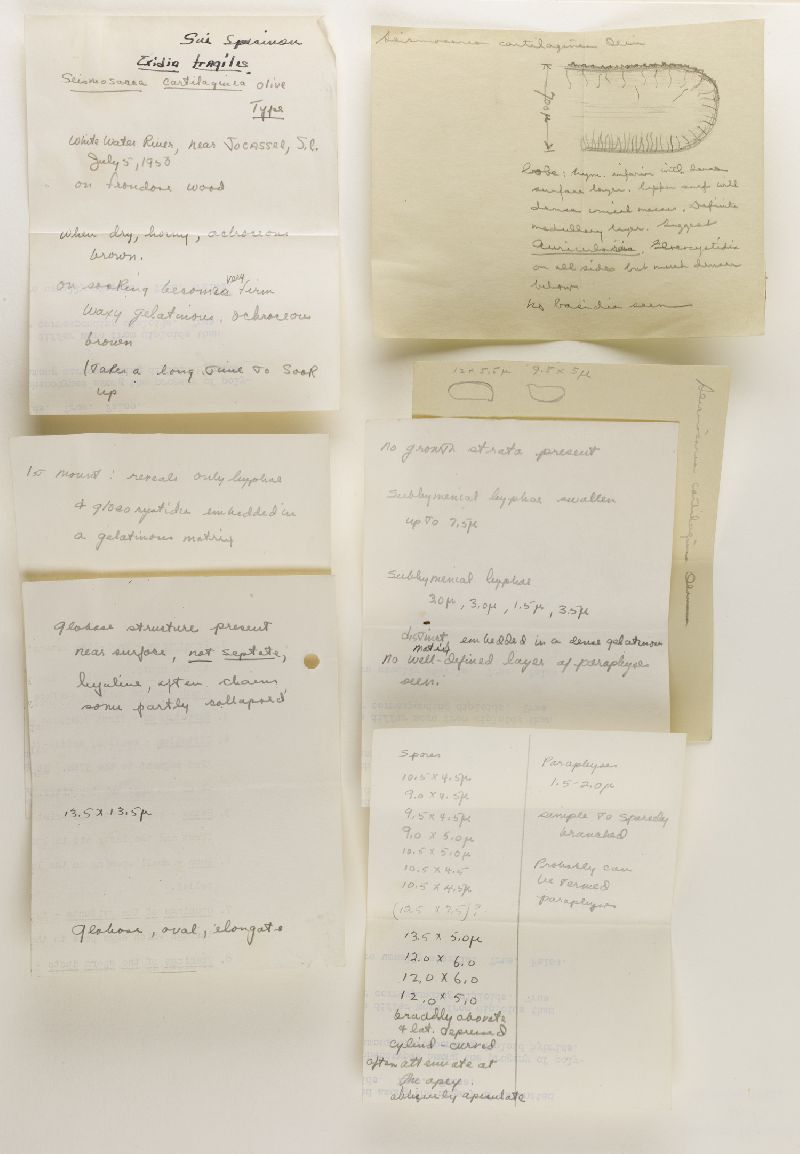 Exidia fragiles
Seismosarca cartilaginea Olive
Type
White Water River, near Jocassee, S.C.
July 5, 1953
on frondose wood
when dry, horny, ochraceous
brown.
on soaking becomes very firm
waxy gelatinous. ochraceous
brown
(Takes a long time to soak
up
Is mount: reveals only hyphae
& gloeocystidia embedded in
a gelatinous matrix
Globose structure present
near surface, not septate,
hyaline, often chains
some partly collapsed
13.5 x 13.5µ
Globose, oval, elongate
Seismosarca cartilaginea
700 µ
hym. inferior with dense
surface layer. Upper surf with
dense
medullary layer. Suggest
Auricularia, Gloeocystidia
on all sides but much denser
below
No basidia seen
12 x 5.5µ 9.5 x 5µ
Seismosarca cartilaginea
No growth strata present
Subhymenial hyphae swollen
up to 7.5µ
Subhymenial hyphae
3.0µ, 1.5µ, 3.5µ
distinct, embedded in a dense gelatinous
matrix
No well-defined layer of paraphyses
seen.
Spores
10.5 x 4.5µ
9.0 x 4.5µ
9.5 x 4.5µ
9.0 x 5.0µ
10.5 x 5.0µ
10.5 x 4.5
10.5 x 4.5µ
(12.5 x 7.5)?
13.5 x 5.0µ
12.0 x 6.0
12.0 x 6.0
12.0 x 5.0
broadly obovate
& lat. depressed
cylind-curved
often attenuate at
the apex.
obliquely apiculate
Paraphyses
1.5-2.0µ
simple to sparsely
branched
Probably can
be termed
paraphyses